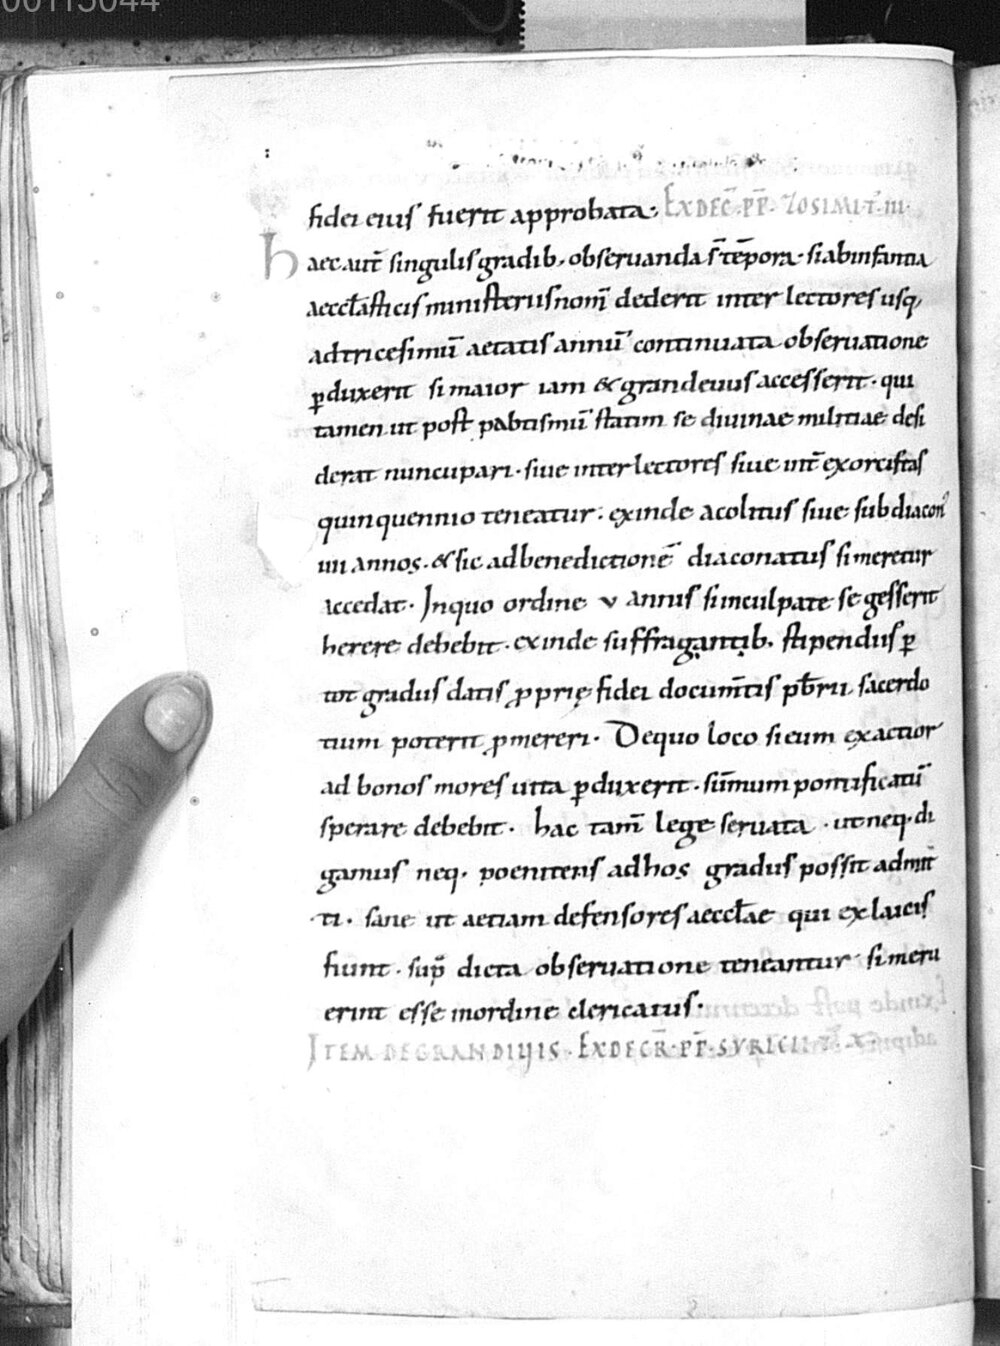 00115044
fidei eius fuerit approbata; EX DEC̄. PP̄. ZOSIMI. T̄. III.
Haec aut̄ singulis gradib; observanda s̄ tēpora. si ab infantia
aeccłasticis ministeriis nom̄ dederit inter lectores usq;
ad tricesimū aetatis annū continuata observatione
ꝑduxerit si maior iam & grandevus accesserit. qui
tamen ut post pabtismū statim se divinae militiae desi
derat nuncupari. sive inter lectores sive int̄ exorcistas
quinquennio teneatur. exinde acolitus sive subdiacon̄
IIII annos. & sic ad benedictionē diaconatus si meretur
accedat. In quo ordine V annis si inculpate se gesserit
herere debebit. exinde suffragantib; stipendiis ꝑ
tot gradus datis ꝓprię fidei docum̄tis pb̄rii sacerdo
tium poterit ꝓmereri. De quo loco si eum exactior
ad bonos mores vita ꝑduxerit. sūmum pontificatū
sperare debebit. hac tam̄ lege servata. ut neq; di
gamus neq; poenitens ad hos gradus possit admit
ti. sane ut aetiam defensores aeccłae qui ex laicis
fiunt. sup̄ dicta observatione teneantur. si meru
erint esse in ordine clericatus.
ITEM DE GRANDIIIIS. EX DECR̄. PP̄. SYRICII T̄. X.